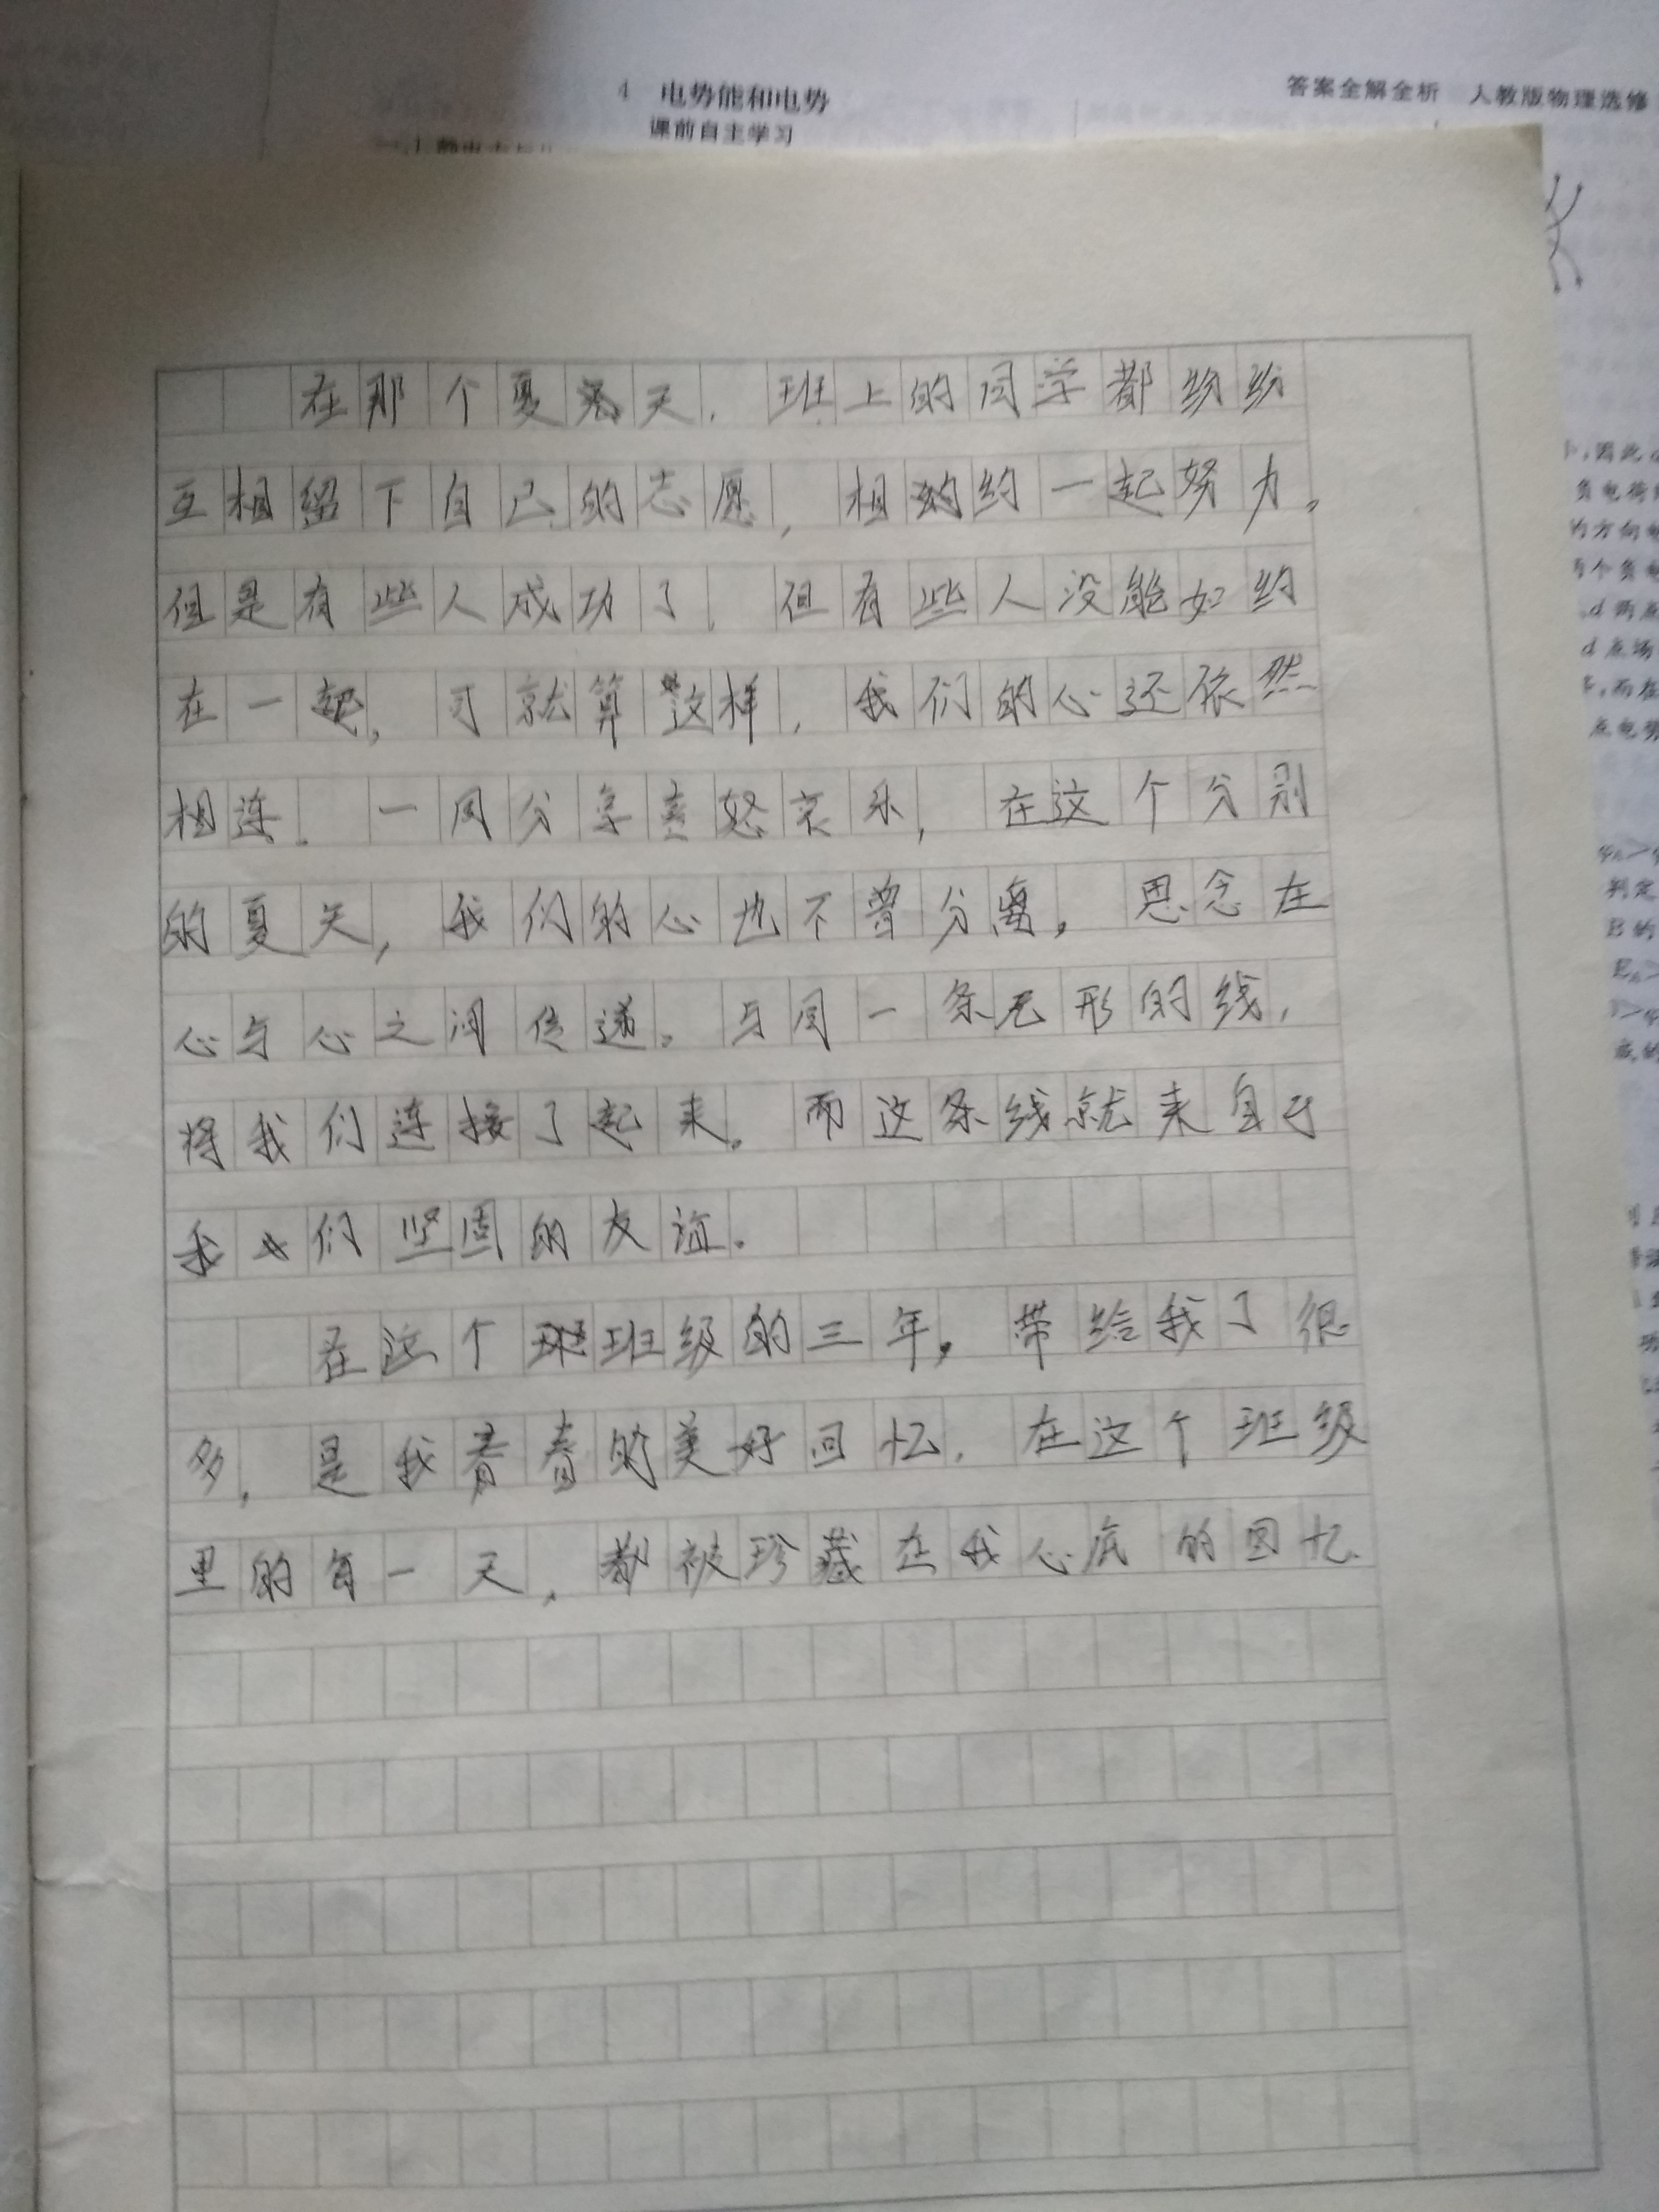 4 电势能和电势
课前自主学习
答案全解全析 人教版物理选修
在那个夏天，班上的同学都纷纷
互相留下自己的志愿，相约一起努力。
但是有些人成功了，但有些人没能如约
在一起，可就算这样，我们的心还依然
相连．一同分享喜怒哀乐，在这个分别
的夏天，我们的心也不曾分离，思念在
心与心之间传递。与同一条无形的线，
将我们连接了起来。而这条线就来自于
我们坚固的友谊。
在这个班级的三年，带给我了很
多，是我青春的美好回忆．在这个班级
里的每一天，都被珍藏在我心底的回忆．
，因此
负电荷
的方向
d 两点
d 点场
，而在
点电势
判定
B 的